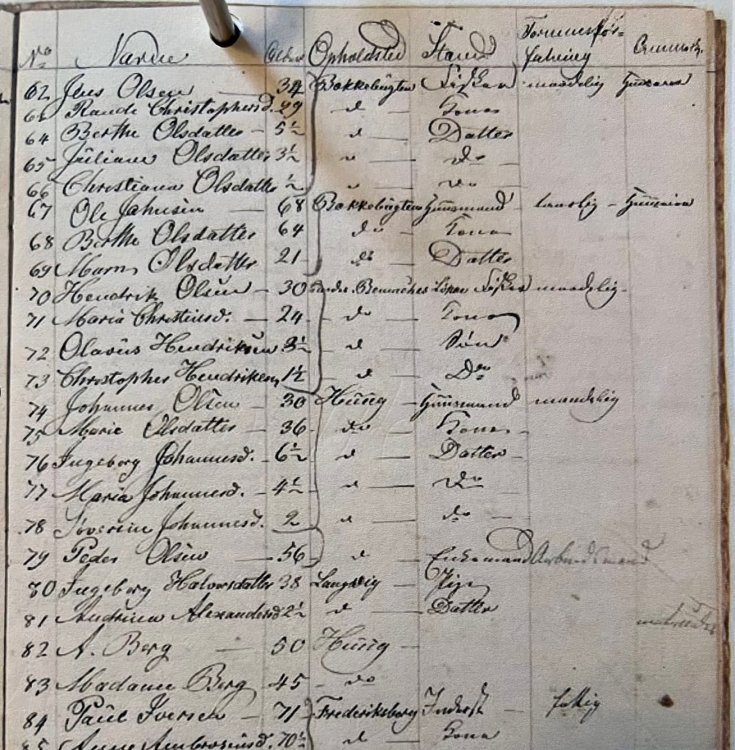 No Navne Alder Opholdsted Stand Formuesfor-
fatning Anmærk.
62 Jens Olsen 34 Bakkebygten Fisker maadelig Huusarm
63 Rande Christophersd. 29 do Kone
64 Berthe Olsdatter 5½ do Datter
65 Juliane Olsdatter 3½ do do
66 Christiana Olsdatter ½ do do
67 Ole Jahnsen 68 Bakkebygten Huusmand
68 Berthe Olsdatter 64 do Kone
69 Maren Olsdatter 21 do Datter
70 Hendrik Olsen 30 Fisker maadelig
71 Maria Christensd. 24 do Kone
72 Olavus Hendriksen 3½ do Søn
73 Christopher Hendriksen 1½ do Do
74 Johannes Olsen 30 Huusmand maadelig
75 Marie Olsdatter 36 do Kone
76 Ingeborg Johannesd. 6½ do Datter
77 Maria Johannesd. 4½ do Do
78 Severine Johannesd. 2 do do
79 Peder Olsen 56 do Enkemand Arbeidsmand
80 Ingeborg Halvorsdatter 38 Langvig Pige
81 Andrina Alexandersd 2½ do Datter
82 A. Berg 50
83 Madame Berg 45 do
84 Paul Iversen 71 Frederiksborg Inderst fattig
85 Anne Ambrosiusd. 70½ do Kone